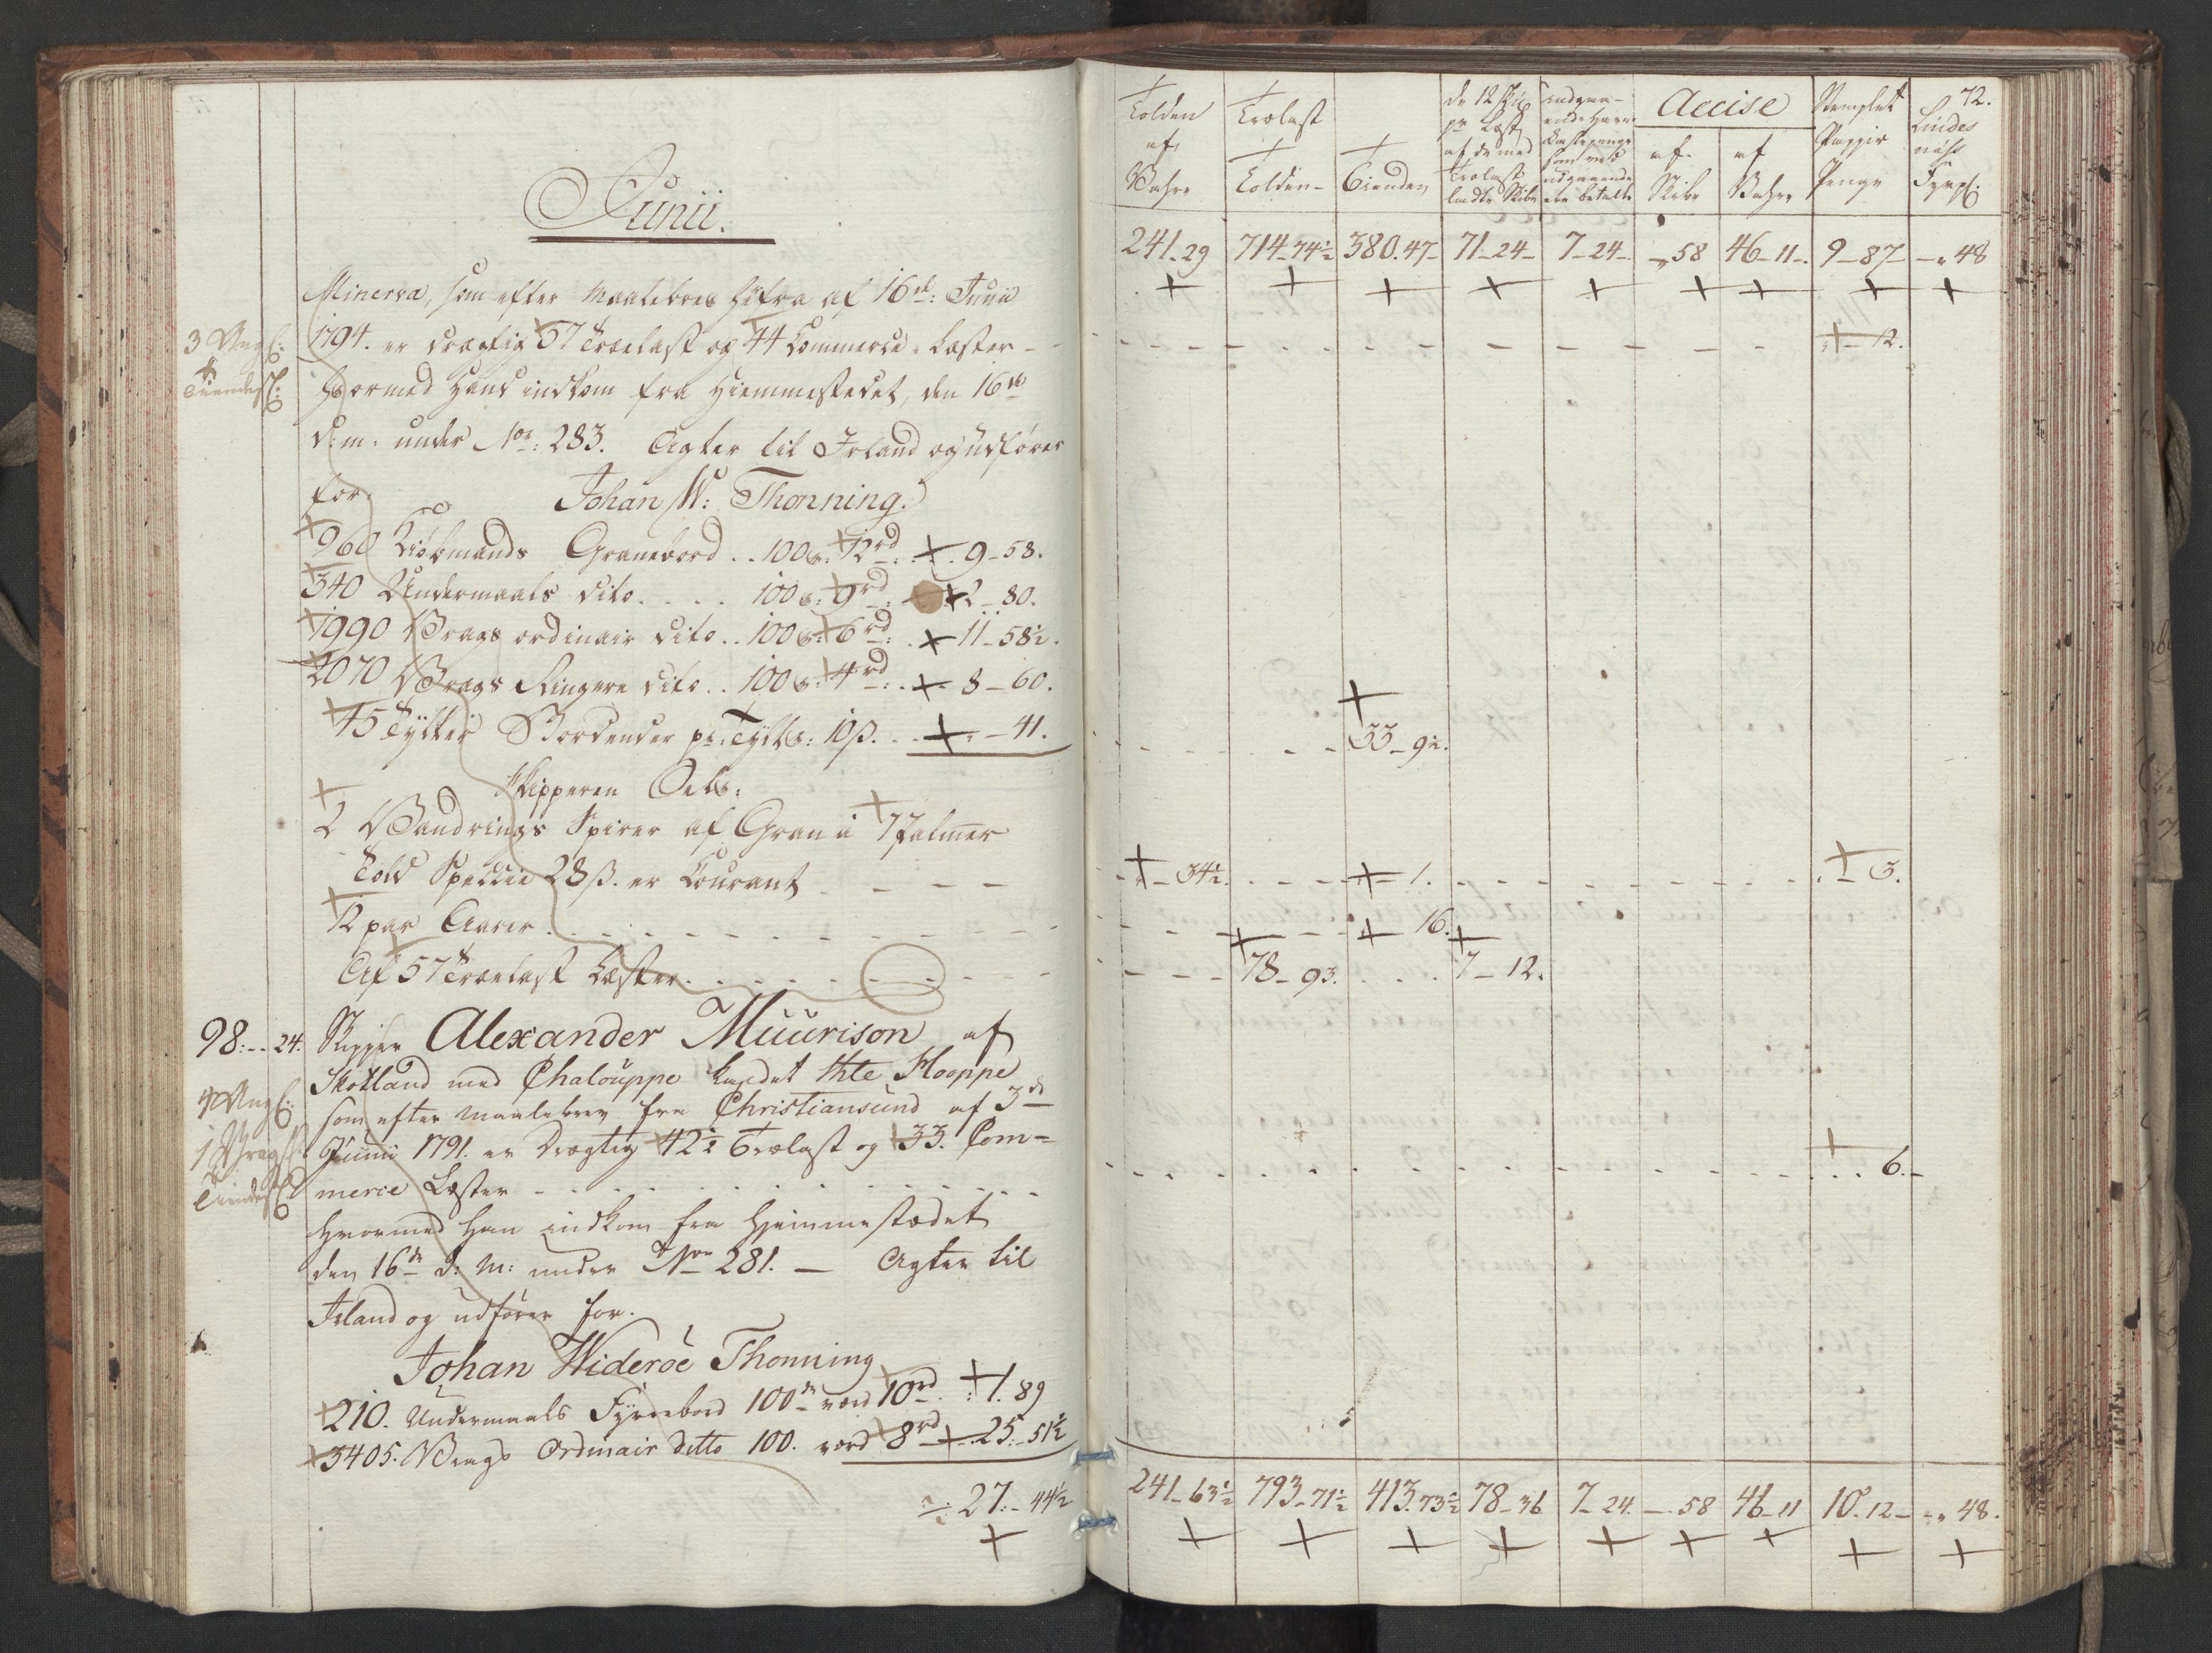 Junii.
Minerva, som efter Maalebrev hærfra af 16de: Junii
3 Angs:
1794. er drægtig 57 Trælast og 44 Commerce-Læster
Tiendes:
hvormed hand indkom fra Hiemmestedet, den 16de
d: m: under No: 283. Agter til Irland og udfører
for
Johan W: Thonning.
960 Kiøbmands Granebord .. 100 12rd 9-58.
340 Undermaals dito. . . . 100 9rd: 2-80.
1990 Vrags ordinair dito .. 100 6rd: 11-58½.
2070 Vrags Ringere dito .. 100 4rd: 8-60.
45 Tylter Bordender pr: Tylt: 10ß. - 41.
Skipperen
2 Vandrings Spirer af Gran à 7 Palmer
Told Specie 28ß. er Courant
12 par Aarer
Af 57 Trælast Læster
98: 24. Skipper Alexander Muurison af
Skotland med Chalouppe kaldet the Hooppe
4 Angs:
som efter Maalebrev fra Christiansund af 3de
1 Vrags:
Junii 1791. er drægtig 42½ Trælast og 33. Com=
Tiendes:
merce Læster
hvormed han indkom fra Hjemmestædet
den 16de d: M: under No 281. — Agter til
Irland og udfører for.
Johan Widerøe Thonning
210. Undermaals Fyrrebord 100de værd 10rd: 1. 89
3405. Vrags Ordinair ditto 100. værd 8rd 25.-51½
27.-44½
72.
Tolden af Vahre
Trælast Tolden
Tienden
de 12 pr Læst af de med Trælast ladte Skibe
indgaaende som ved udgaaende ere betalte
Accise
af Skibe
af Vahre
Stemplet Pappir Penge
241-29 714-74½ 380.47- 71-24- 7-24- -58 46-11-. 9-87- -"48
"-12.
33-9½.
"-34½. "-1. "-3.
"-16.
78-93. 7-12.
6.-
241-63½ 793-71½ 413.73½ 78-36 7-24. -58 46-11 10-12- -"48.